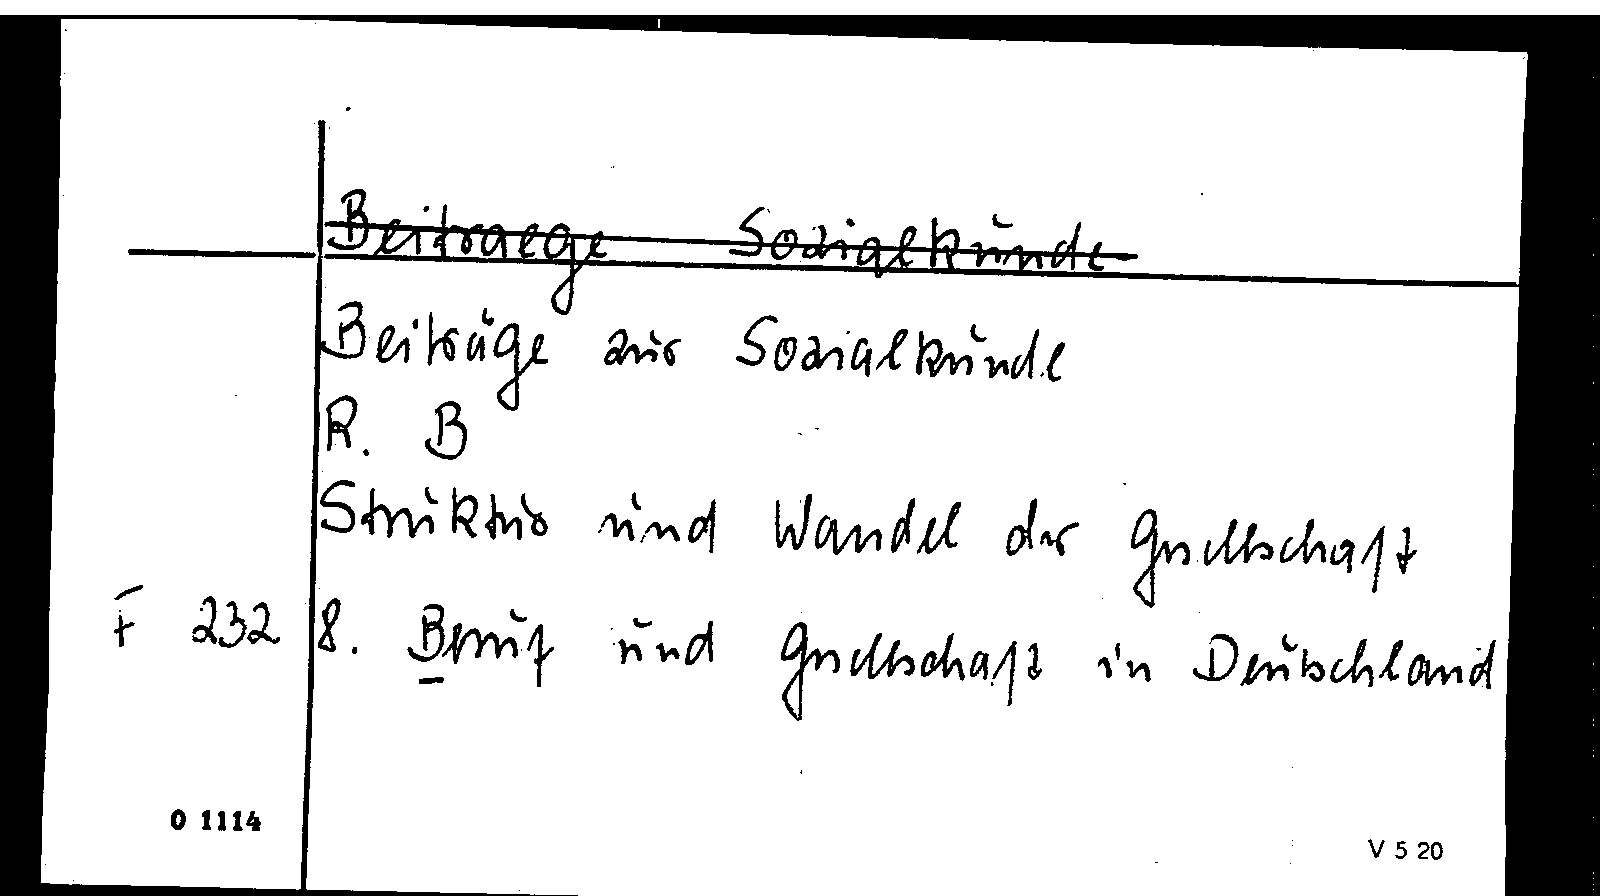 Beitraege Sozialkunde
Beiträge zur Sozialkunde
R. B
Struktur und Wandel der Gesellschaft
F 232 8. Beruf und Gesellschaft in Deutschland
0 1114
V 5 20